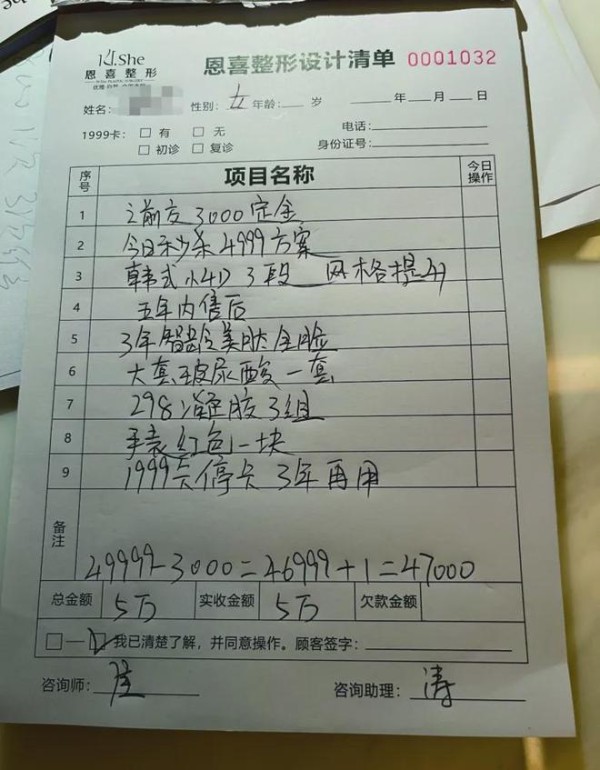 KJ.She
恩喜整形
恩喜整形设计清单 0001032
姓名: 性别: 女 年龄: 岁 年 月 日
1999卡: □ 有 □ 无 电话:
□ 初诊 □ 复诊 身份证号:
序号 项目名称 今日操作
1 之前交3000定金
2 今日秒杀4999方案
3 韩式小4D 3段 网格提升
4 五年内售后
5 3年智龄美肤全脸
6 大套玻尿酸一套
7 298凝胶3组
8 手表红包一块
9 1999卡停卡3年再用
备注 49999-3000=46999+1=47000
总金额 5万 实收金额 5万 欠款金额
□—☑我已清楚了解,并同意操作。顾客签字:
咨询师: 咨询助理: 涛